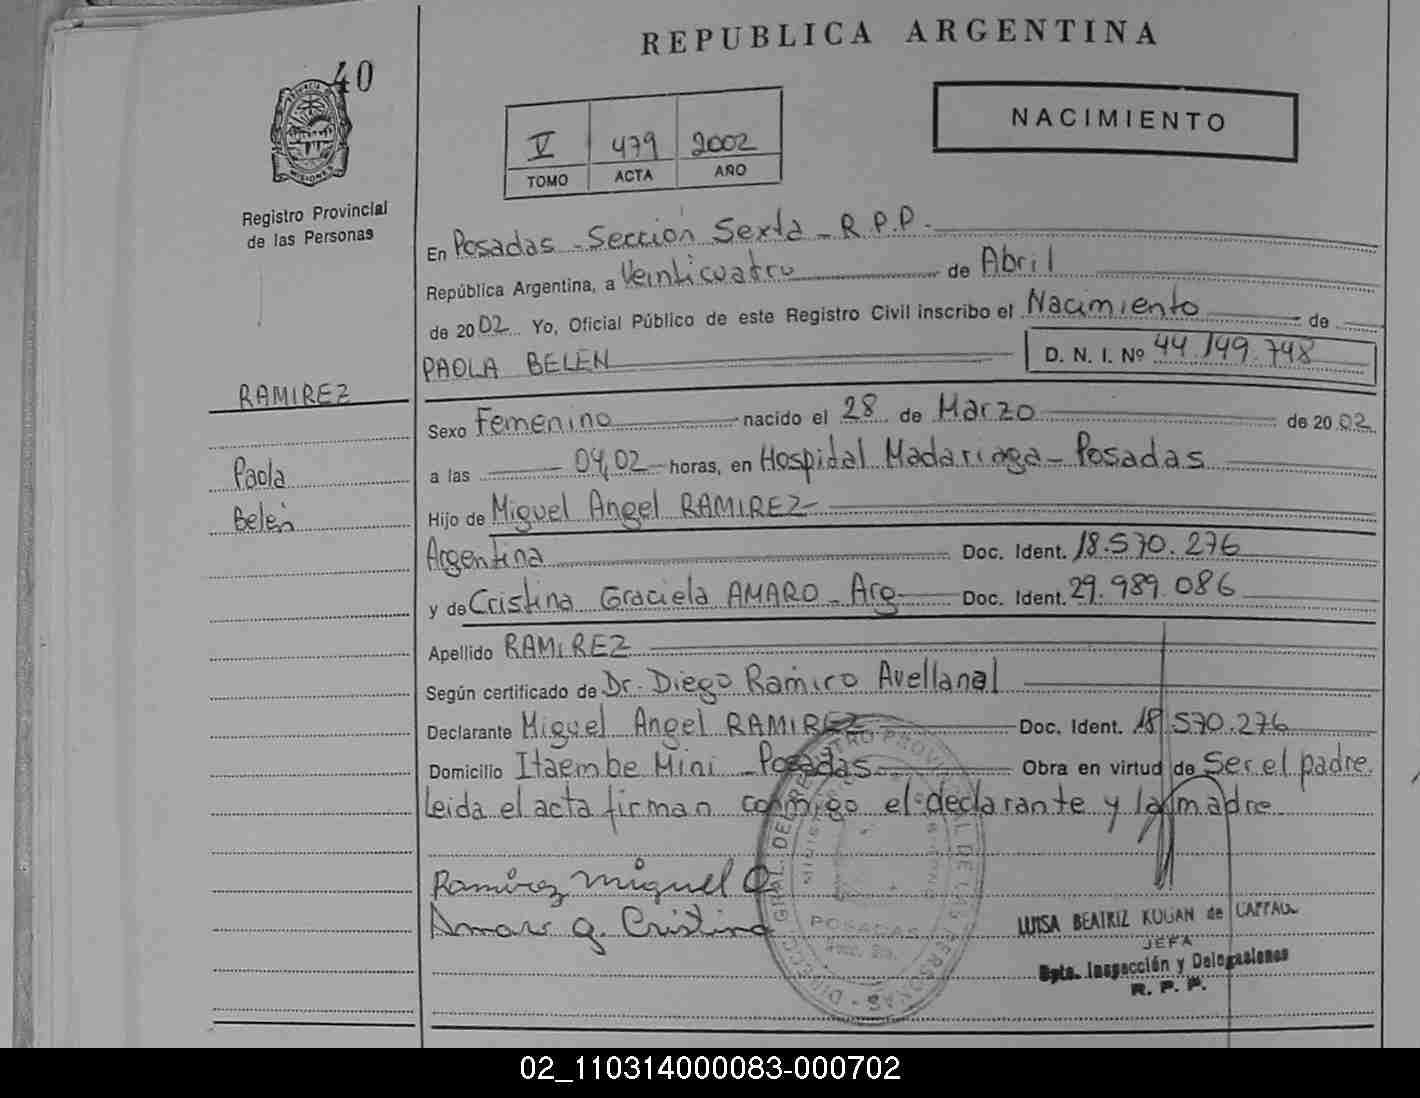 REPUBLICA ARGENTINA
40
NACIMIENTO
V 479 2002
TOMO ACTA AÑO
PROVINCIA DE MISIONES
Registro Provincial
de las Personas
En Posadas - Sección Sexta - R.P.P.-
República Argentina, a Veinticuatro de Abril
de 2002 Yo, Oficial Público de este Registro Civil inscribo el Nacimiento de
PAOLA BELEN D. N. I. Nº 44.149.748
RAMIREZ
Paola
Belen
Sexo Femenino nacido el 28 de Marzo de 2002
a las 04,02 horas, en Hospital Madariaga - Posadas
Hijo de Miguel Angel RAMIREZ
Argentina Doc. Ident. 18.570.276
y de Cristina Graciela AMARO - Arg Doc. Ident. 29.989.086
Apellido RAMIREZ
Según certificado de Dr. Diego Ramiro Avellanal
Declarante Miguel Angel RAMIREZ Doc. Ident. 18.570.276
Domicilio Itaembe Mini - Posadas Obra en virtud de Ser el padre.
Leida el acta firman conmigo el declarante y la madre
Ramírez Miguel
Amaro g. Cristina
DIRECC. GRAL. DEL REGISTRO PROVINCIAL DE LAS PERSONAS
POSADAS
LUISA BEATRIZ KOGAN de
JEFA
Dpto. Inspección y Delegaciones
R. P. P.
02_110314000083-000702